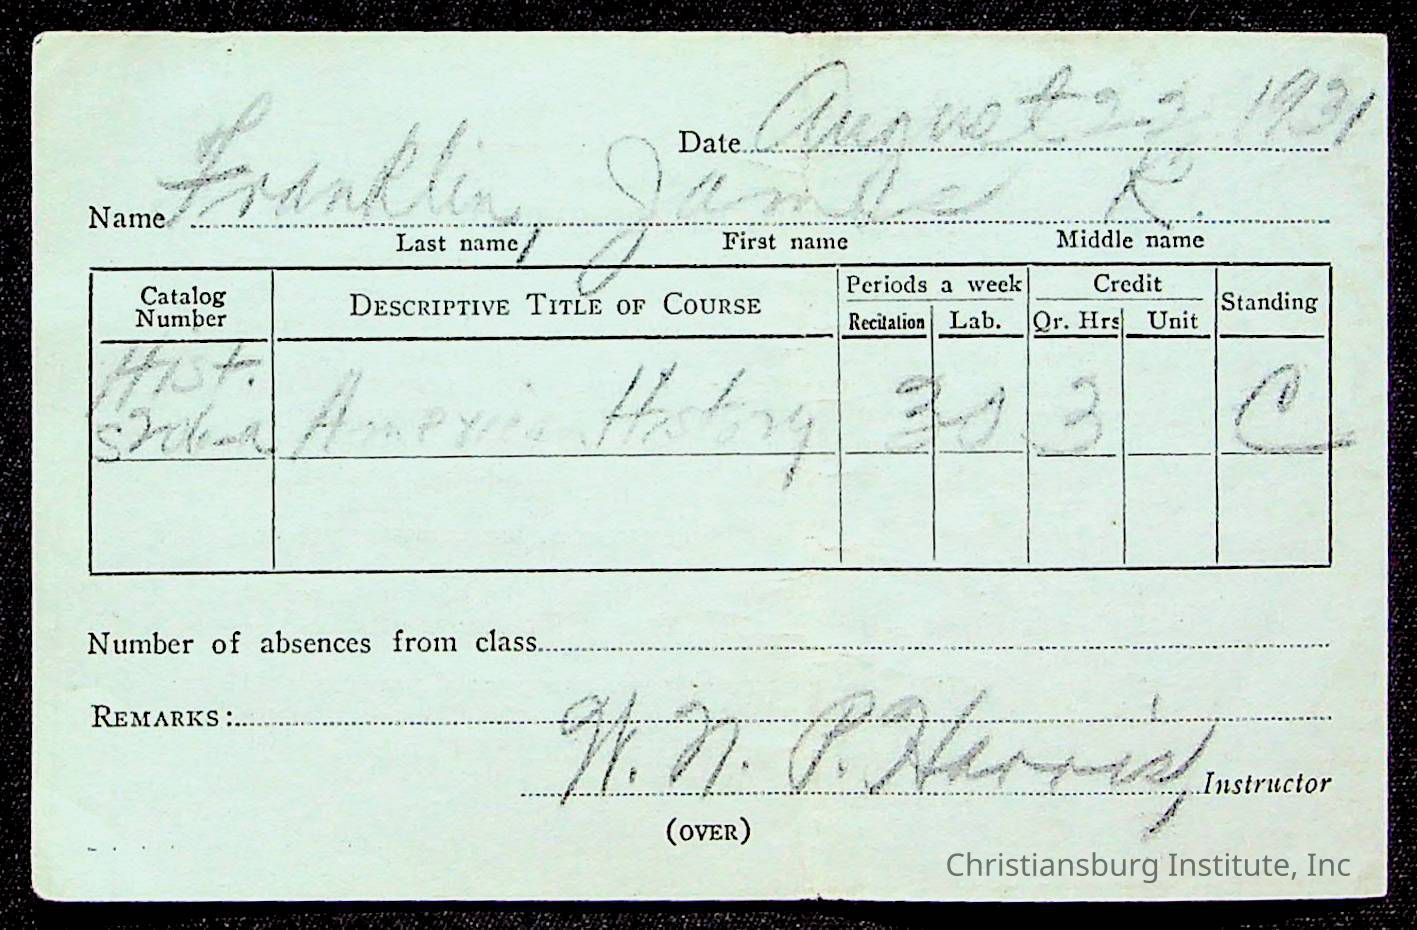 Date August 22 1931
Name Franklin, James R.
Last name First name Middle name
Catalog Number DESCRIPTIVE TITLE OF COURSE Periods a week Credit Standing
Recitation Lab. Qr. Hrs Unit
Hist. American History 3 3 C
Number of absences from class
REMARKS:
W. N. P. Harris, Instructor
(OVER)
Christiansburg Institute, Inc